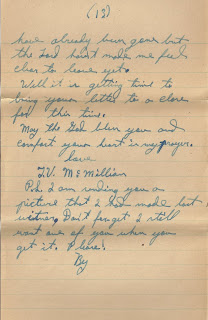 (13)
have already been gone but
the Lord hasn't made me feel
clear to leave yet.
Well it is getting time to
bring your letter to a close
for this time.
May the God bless you and
comfort your heart is my prayer.
Love
T.V. McMillian
P.S. I am sending you a
picture that I had made last
winter. Don't forget I still
want one of you when you
get it. Please!
By